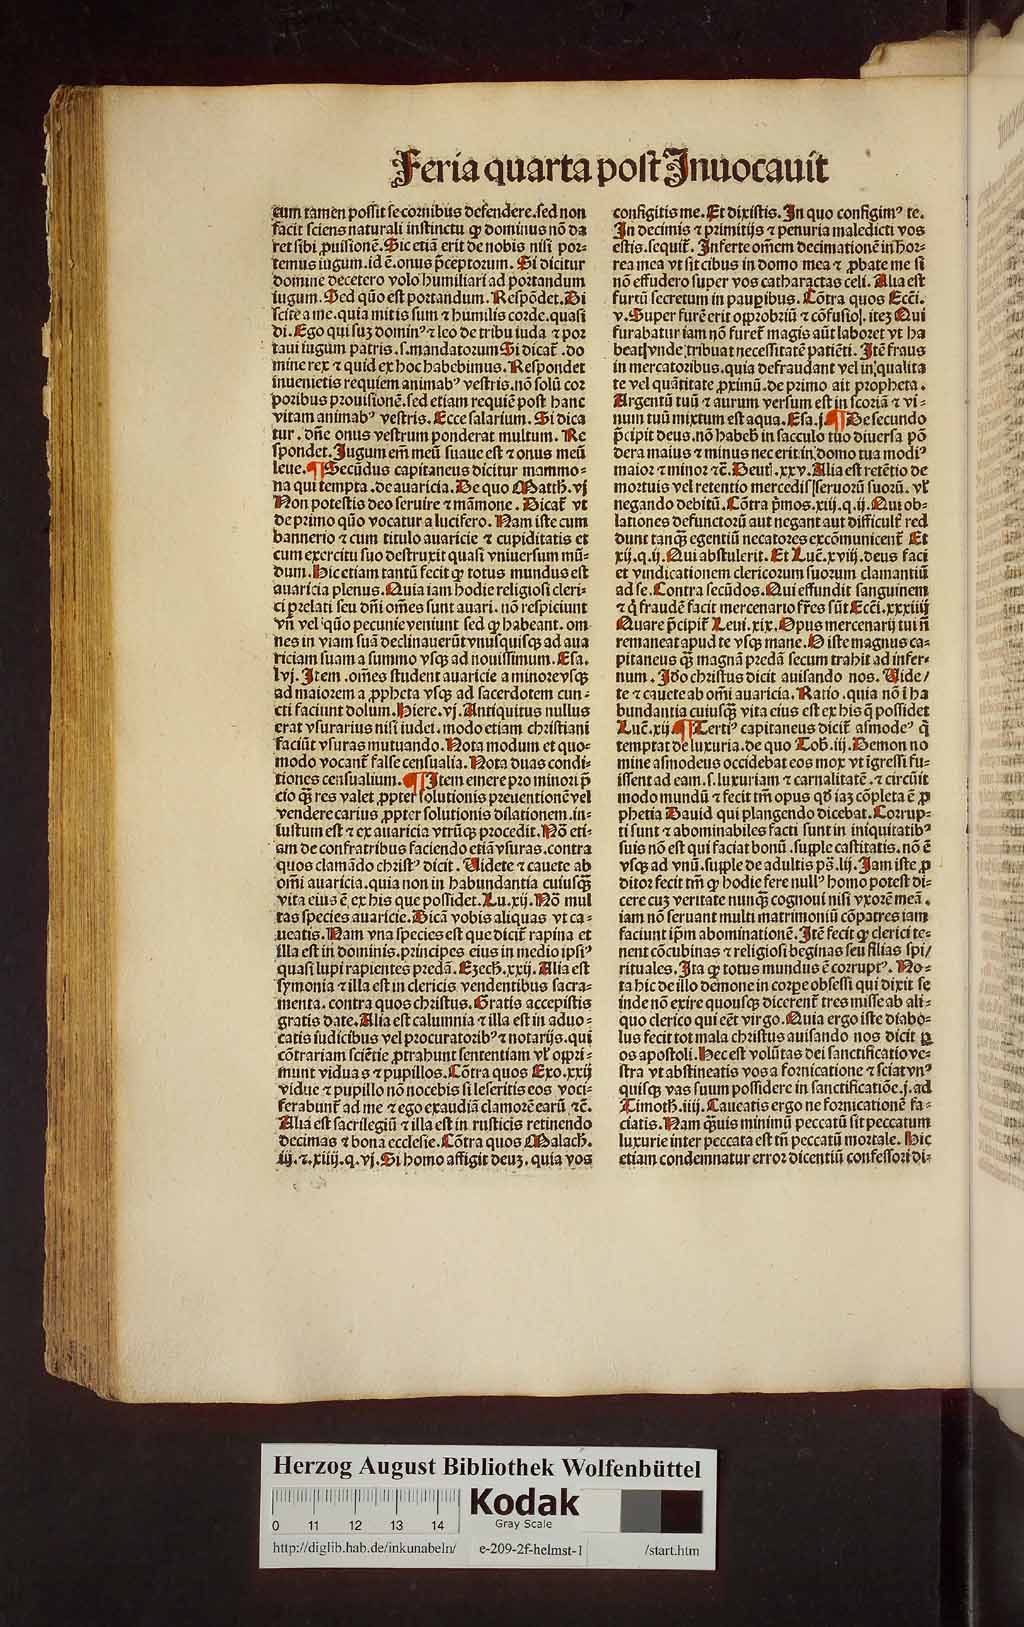 Feria quarta post Inuocauit
cum tamen possit se cornibus defendere. sed non
facit sciens naturali instinctu ꝙ dominus nō da
ret sibi ꝓuisionē. Sic etiā erit de nobis nisi por⸗
temus iugum. id ē. onus p̄ceptorum. Si dicitur
domine decetero volo humiliari ad portandum
iugum. Sed quo est portandum. Respōdet. Di
scite a me. quia mitis sum ⁊ humilis corde. quasi
di. Ego qui suꝫ dominꝰ ⁊ leo de tribu iuda ⁊ por
taui iugum patris. s. mandatorum Si dicat̄. do
mine rex ⁊ quid ex hoc habebimus. Respondet
inuenietis requiem animabꝰ vestris. nō solū cor
poribus prouisionē. sed etiam requiē post hanc
vitam animabꝰ vestris. Ecce salarium. Si dica
tur. dn̄e onus vestrum ponderat multum. Re
spondet. Jugum em̄ meū suaue est ⁊ onus meū
leue. ¶ Secūdus capitaneus dicitur mammo⸗
na qui temptat. de auaricia. De quo Matth. vj
Non potestis deo seruire ⁊ māmone. Dicat̄ vt
de primo quo vocatur a lucifero. Nam iste cum
bannerio ⁊ cum titulo auaricie ⁊ cupiditatis et
cum exercitu suo destruxit quasi vniuersum mū⸗
dum. Hic etiam tantū fecit ꝙ totus mundus est
auaricia plenus. Quia iam hodie religiosi cleri⸗
ci prelati seu dn̄i om̄es sunt auari. nō respiciunt
vn̄ vel quo pecunie veniunt sed ꝙ habeant. om⸗
nes in viam suā declinauerūt vnusquisqꝫ ad aua
riciam suam a summo vsqꝫ ad nouissimum. Esa.
lvj. Item. omes student auaricie a minore vsqꝫ
ad maiorem a ꝓpheta vsqꝫ ad sacerdotem cun⸗
cti faciunt dolum. Hiere. vj. Antiquitus nullus
erat vsurarius nisi iudei. modo etiam christiani
faciūt vsuras mutuando. Nota modum et quo⸗
modo vocant̄ false censualia. Nota duas condi⸗
tiones censualium. ¶ Item emere pro minori p̄
cio qꝫ res valet ꝓpter solutionis preuentionē vel
vendere carius ꝓpter solutionis dilationem. in⸗
iustum est ⁊ ex auaricia vtrūqꝫ procedit. Nō eti⸗
am de confratribus faciendo etiā vsuras. contra
quos clamādo christꝰ dicit. Videte ⁊ cauete ab
om̄i auaricia. quia non in habundantia cuiusqꝫ
vita eius ē ex his que possidet. Lu. xij. Nō mul
tas species auaricie. Dicā vobis aliquas vt ca⸗
ueatis. Nam vna species est que dicit̄ rapina et
illa est in dominis. principes eius in medio ipsiꝰ
quasi lupi rapientes predā. Ezech. xxij. Alia est
symonia ⁊ illa est in clericis vendentibus sacra⸗
menta. contra quos christus. Gratis accepistis
gratis date. Alia est calumnia ⁊ illa est in aduo⸗
catis iudicibus vel procuratoribꝰ ⁊ notarijs. qui
cōtrariam sciētie ꝓtrahunt sententiam vl̄ oppri⸗
munt viduas ⁊ pupillos. Cōtra quos Exo. xxij
vidue ⁊ pupillo nō nocebis si leseritis eos voci⸗
ferabunt̄ ad me ⁊ ego exaudiā clamorē earū ⁊c̄.
Alia est sacrilegiū ⁊ illa est in rusticis retinendo
decimas ⁊ bona ecclesie. Cōtra quos Malach.
iij. ⁊. xiiij. q. vj. Si homo affigit deuꝫ. quia vos
configitis me. Et dixistis. In quo configimꝰ te.
In decimis ⁊ primitijs ⁊ penuria maledicti vos
estis. sequit̄. Inferte om̄em decimationē in hor⸗
rea mea vt sit cibus in domo mea ⁊ ꝓbate me si
nō effudero super vos catharactas celi. Alia est
furtū secretum in pauꝑibus. Cōtra quos Ecci.
v. Super furē erit opprobriū ⁊ cōfusio. iteꝫ Qui
furabatur iam nō furet̄ magis aūt laboret vt ha
beat vnde tribuat necessitatē patiēti. Itē fraus
in mercatoribus. quia defraudant vel in qualita
te vel quātitate ꝓximū. de primo ait propheta.
Argentū tuū ⁊ aurum versum est in scoriā ⁊ vi⸗
num tuū mixtum est aqua. Esa. j ¶ De secundo
p̄cipit deus. nō habeb̄ in sacculo tuo diuersa pō
dera maius ⁊ minus nec erit in domo tua modiꝰ
maior ⁊ minor ⁊c̄. Deut̄. xxv. Alia est retētio de
mortuis vel retentio mercedis seruorū suorū. vl̄
negando debitū. Cōtra p̄mos. xiij. q. ij. Qui ob⸗
lationes defunctorū aut negant aut difficult̄ red
dunt tanqꝫ egentiū necatores excōmunicent̄ Et
xij. q. ij. Qui abstulerit. Et Luc̄. xviij. deus faci
et vindicationem clericorum suorum clamantiū
ad se. Contra secūdos. Qui effundit sanguinem
⁊ q̄ fraudē facit mercenario fr̄es sūt Ecci. xxxiiij
Quare p̄cipit̄ Leui. xix. Opus mercenarij tui n̄
remaneat apud te vsqꝫ mane. O iste magnus ca⸗
pitaneus qꝫ magnā predā secum trahit ad infer⸗
num. Ido christus dicit auisando nos. Vide/
te ⁊ cauete ab om̄i auaricia. Ratio. quia nō ī ha
bundantia cuiusqꝫ vita eius est ex his q̄ possidet
Luc̄. xij ¶ Tertiꝰ capitaneus dicit̄ asmodeꝰ q̄
temptat de luxuria. de quo Tob. iij. Demon no
mine asmodeus occidebat eos mox vt īgressi fu⸗
issent ad eam. s. luxuriam ⁊ carnalitatē. ⁊ circūit
modo mundū ⁊ fecit tm̄ opus qd̄ iaꝫ cōpleta ē ꝓ
phetia Dauid qui plangendo dicebat. Corrup⸗
ti sunt ⁊ abominabiles facti sunt in iniquitatibꝰ
suis nō est qui faciat bonū. supple castitatis. nō ē
vsqꝫ ad vnū. supple de adultis ps̄. lij. Jam iste ꝓ
ditor fecit tm̄ ꝙ hodie fere nullꝰ homo potest di⸗
cere cuꝫ veritate nunqꝫ cognoui nisi vxorē meā.
iam nō seruant multi matrimoniū cōpatres iam
faciunt ip̄m abominationē. Itē fecit ꝙ clerici te⸗
nent cōcubinas ⁊ religiosi beginas seu filias spi/
rituales. Ita ꝙ totus mundus ē corruptꝰ. No⸗
ta hic de illo demone in corpe obsessi qui dixit se
inde nō exire quousqꝫ dicerent̄ tres misse ab ali⸗
quo clerico qui eēt virgo. Quia ergo iste diabo⸗
lus fecit tot mala christus auisando nos dicit ꝑ
os apostoli. Hec est volūtas dei sanctificatio ve⸗
stra vt abstineatis vos a fornicatione ⁊ sciat vnꝰ
quisqꝫ vas suum possidere in sanctificatiōe. j. ad
Timoth. iiij. Caueatis ergo ne fornicationē fa⸗
ciatis. Nam qꝫuis minimū peccatū sit peccatum
luxurie inter peccata est tn̄ peccatū mortale. Hic
etiam condemnatur error dicentiū confessori di⸗
Herzog August Bibliothek Wolfenbüttel
Kodak
Gray Scale
0 11 12 13 14
http://diglib.hab.de/inkunabeln/ e-209-2f-helmst-1 /start.htm